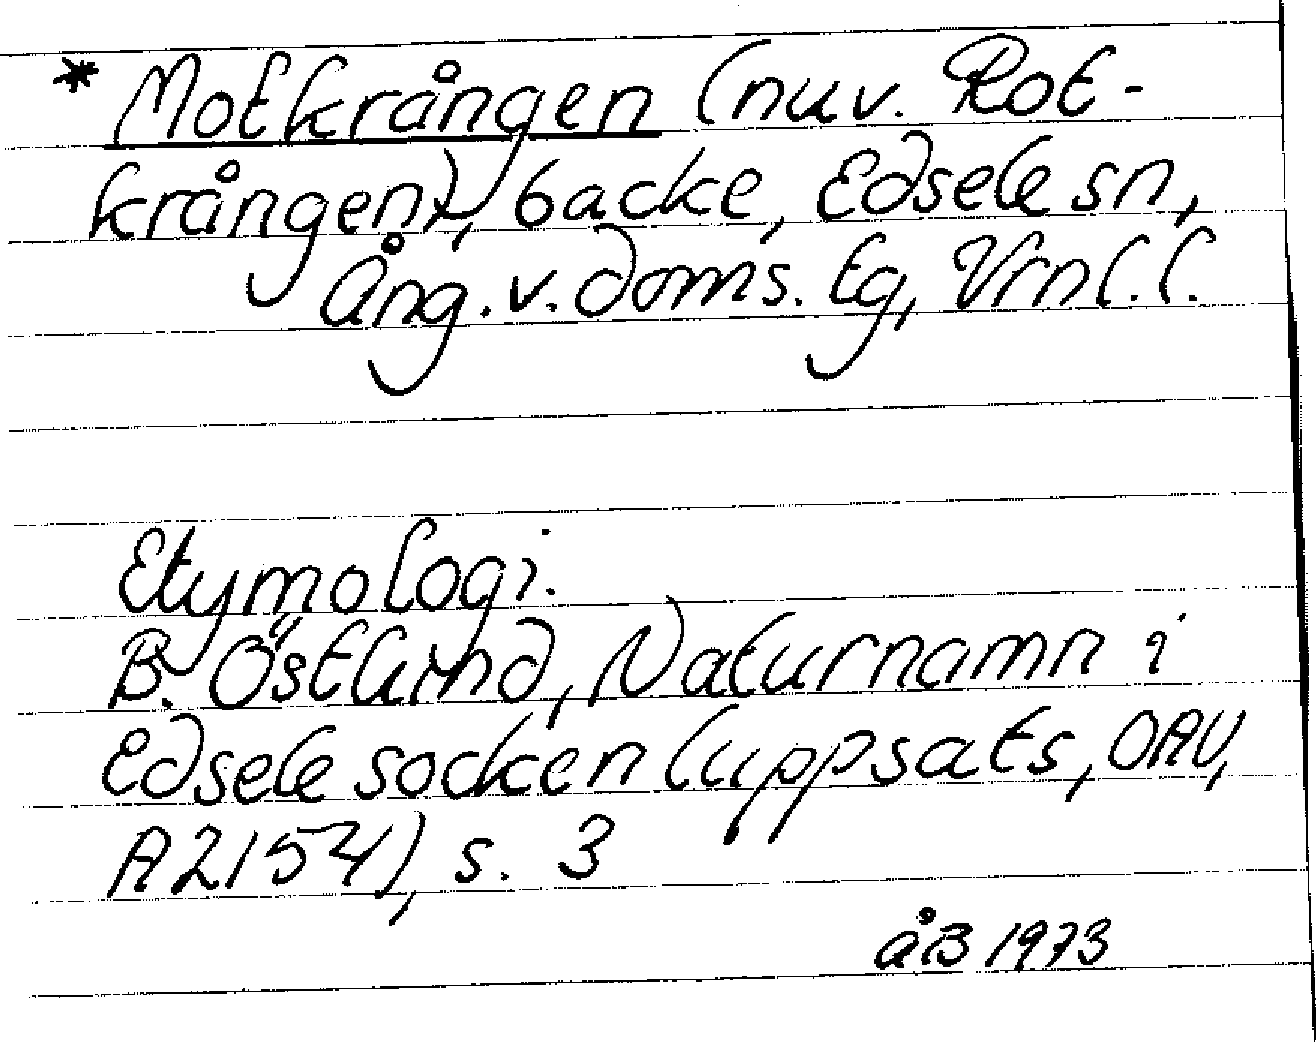 * Motkrången (nuv. Rot-
krången), backe, Edsele sn,
Ång. v. doms. tg, Vrnl. l.
Etymologi.
B. Östlund, Naturnamn i
Edsele socken (uppsats, OAU,
A2154), s. 3
åB 1973